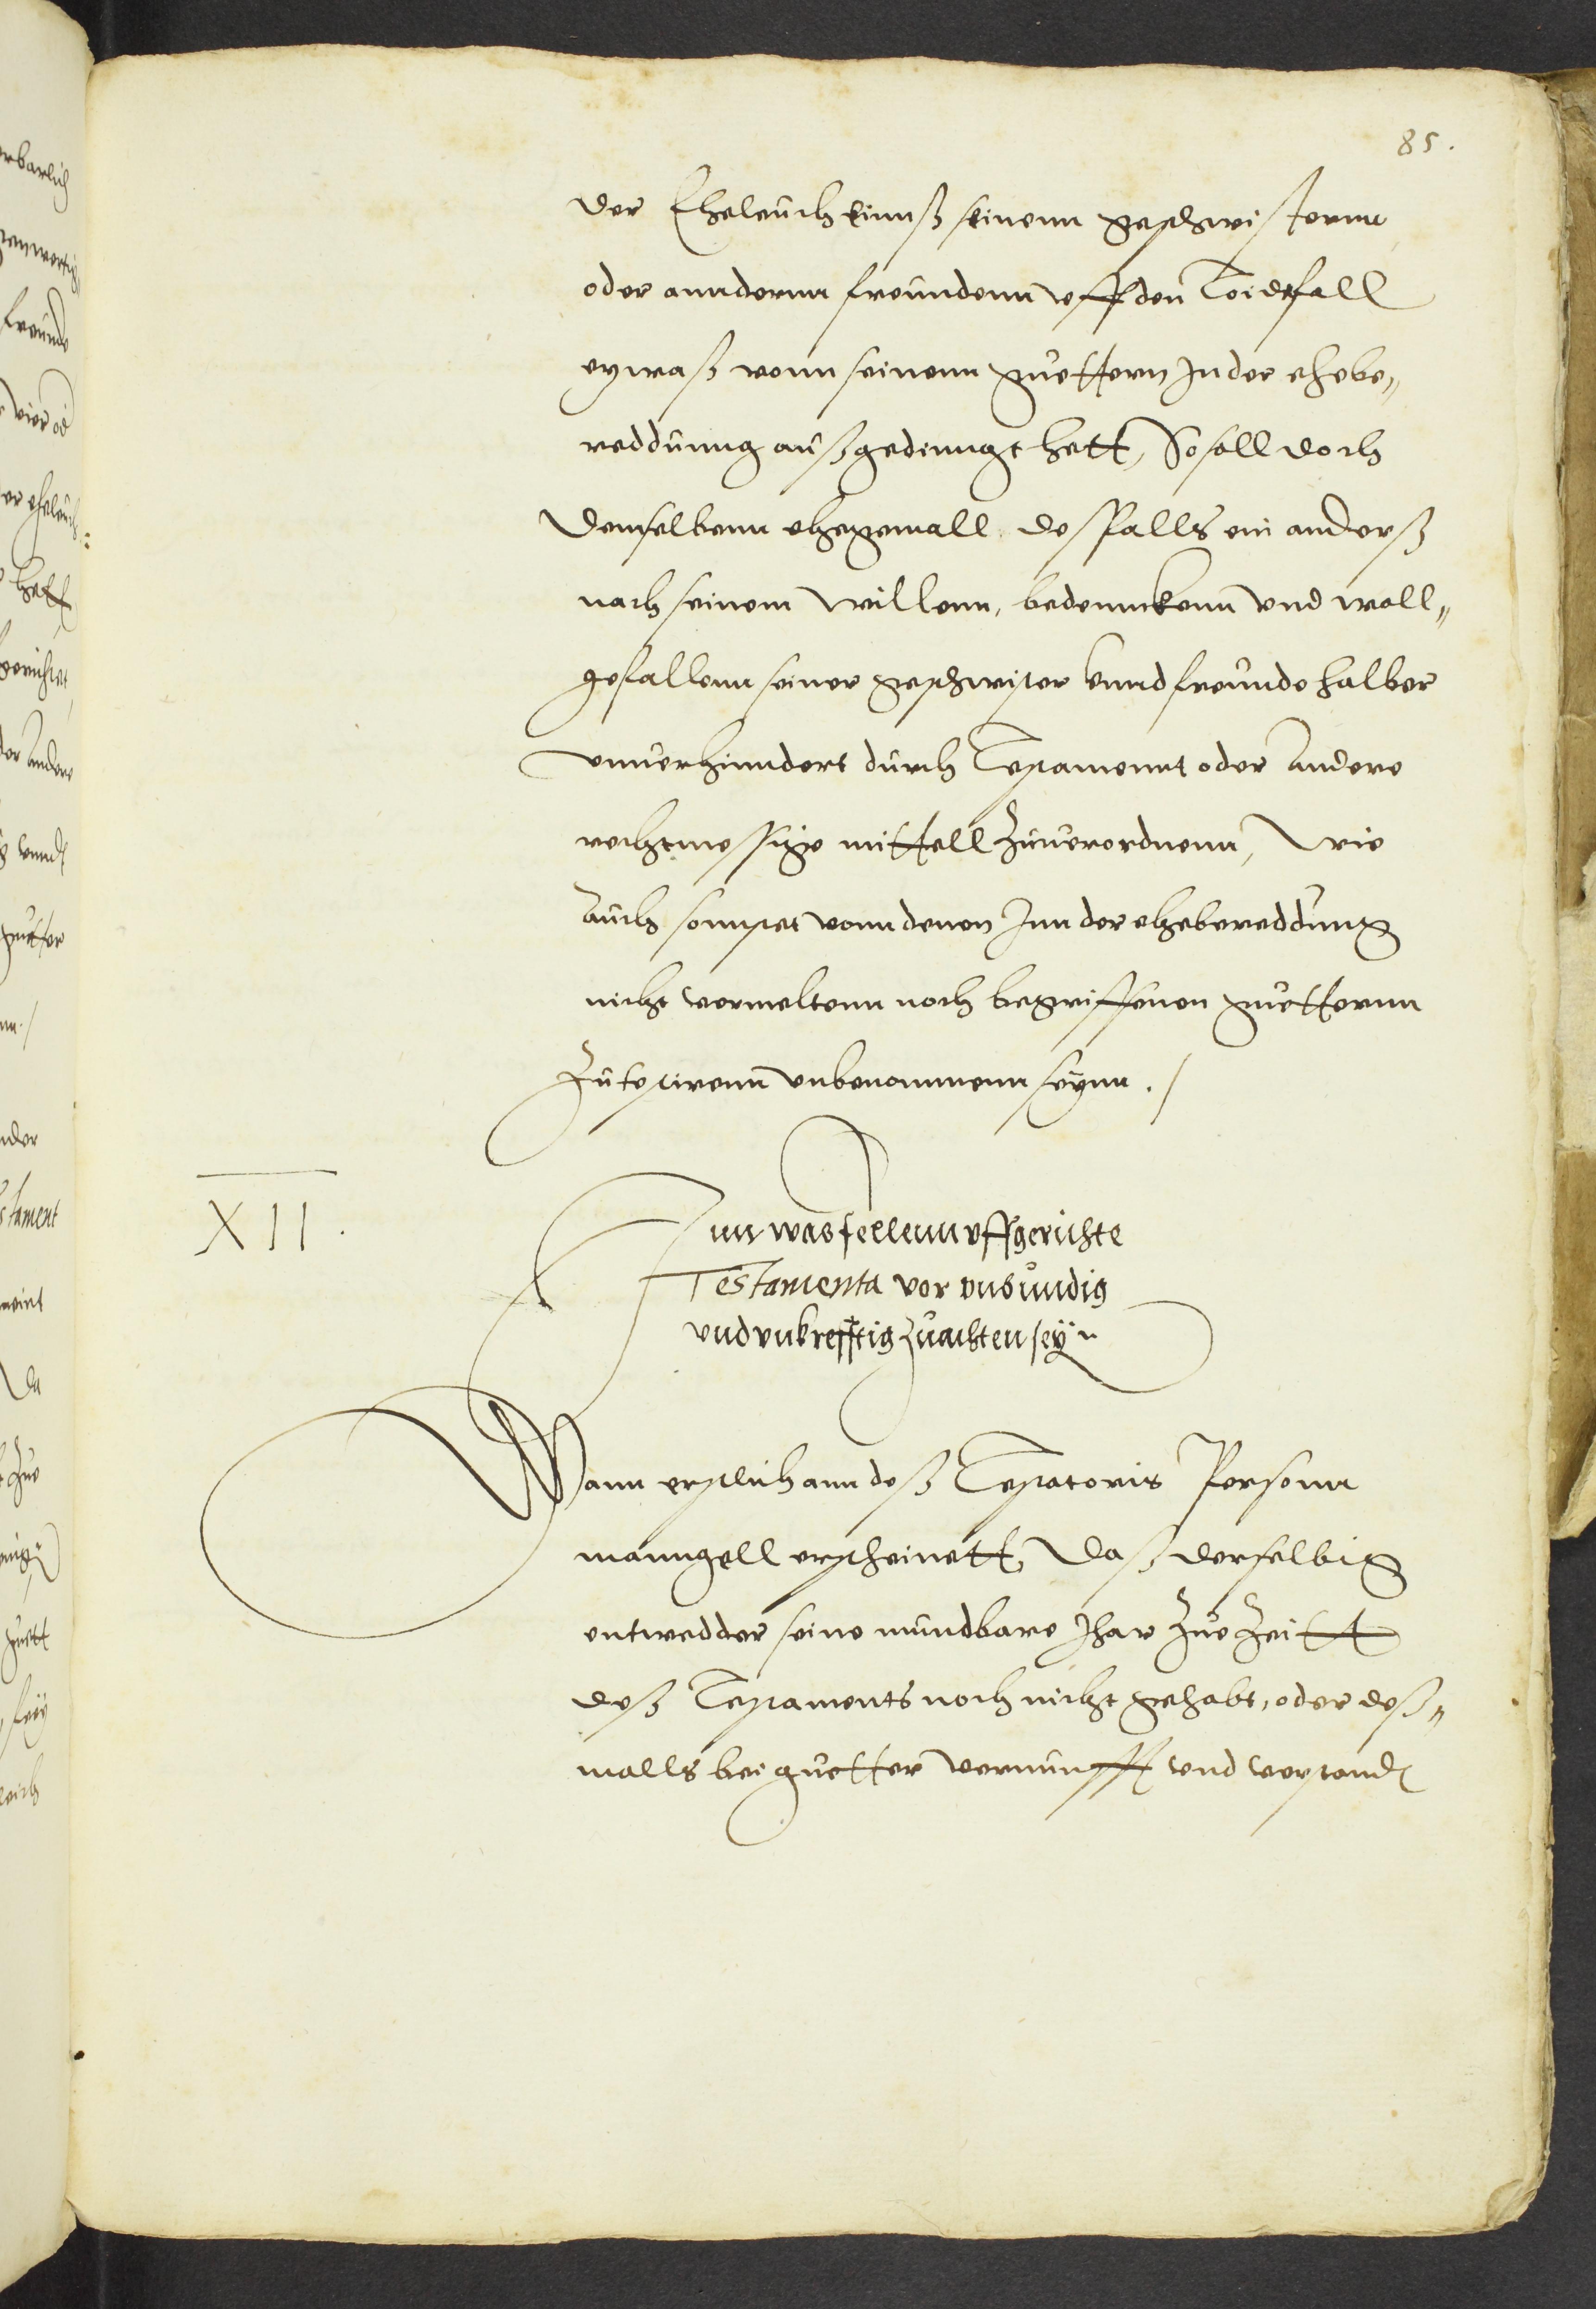 85.
der Eheleuch einnß seinenn geschwisternn
oder anndernn freundenn vff den Toidtfall
etzwaß vonn seinenn guettern Inn der ehebe„
reddunng außgedinngt hett, So soll doch
demselbenn ehegemall deßfalls ein anderß
nach seinem willenn, bedennckenn vnd woll„
gefallenn seiner geschwister vnnd freunde halber
vnuerhinndert durch Testamennt oder andere
rechtmessige mittell zuuerordnenn, wie
auch sonnst vonn denen Inn der ehebereddung
nicht vermeltenn noch begriffenen guetternn
zu testirenn vnbenommenn seynn ./
XII.
Inn was fellenn vffgerichte
Testamenta vor vnbundig
vnd vnkrefftig zuachten seyn
Wann erstlich ann deß Testatoris Personn
manngell erscheinett, daß derselbig
entwedder seine mundbare Jhar zue Zeitt
deß Testaments noch nicht gehabt, oder deß„
malls bei guetter vernunfft vnd verstandt